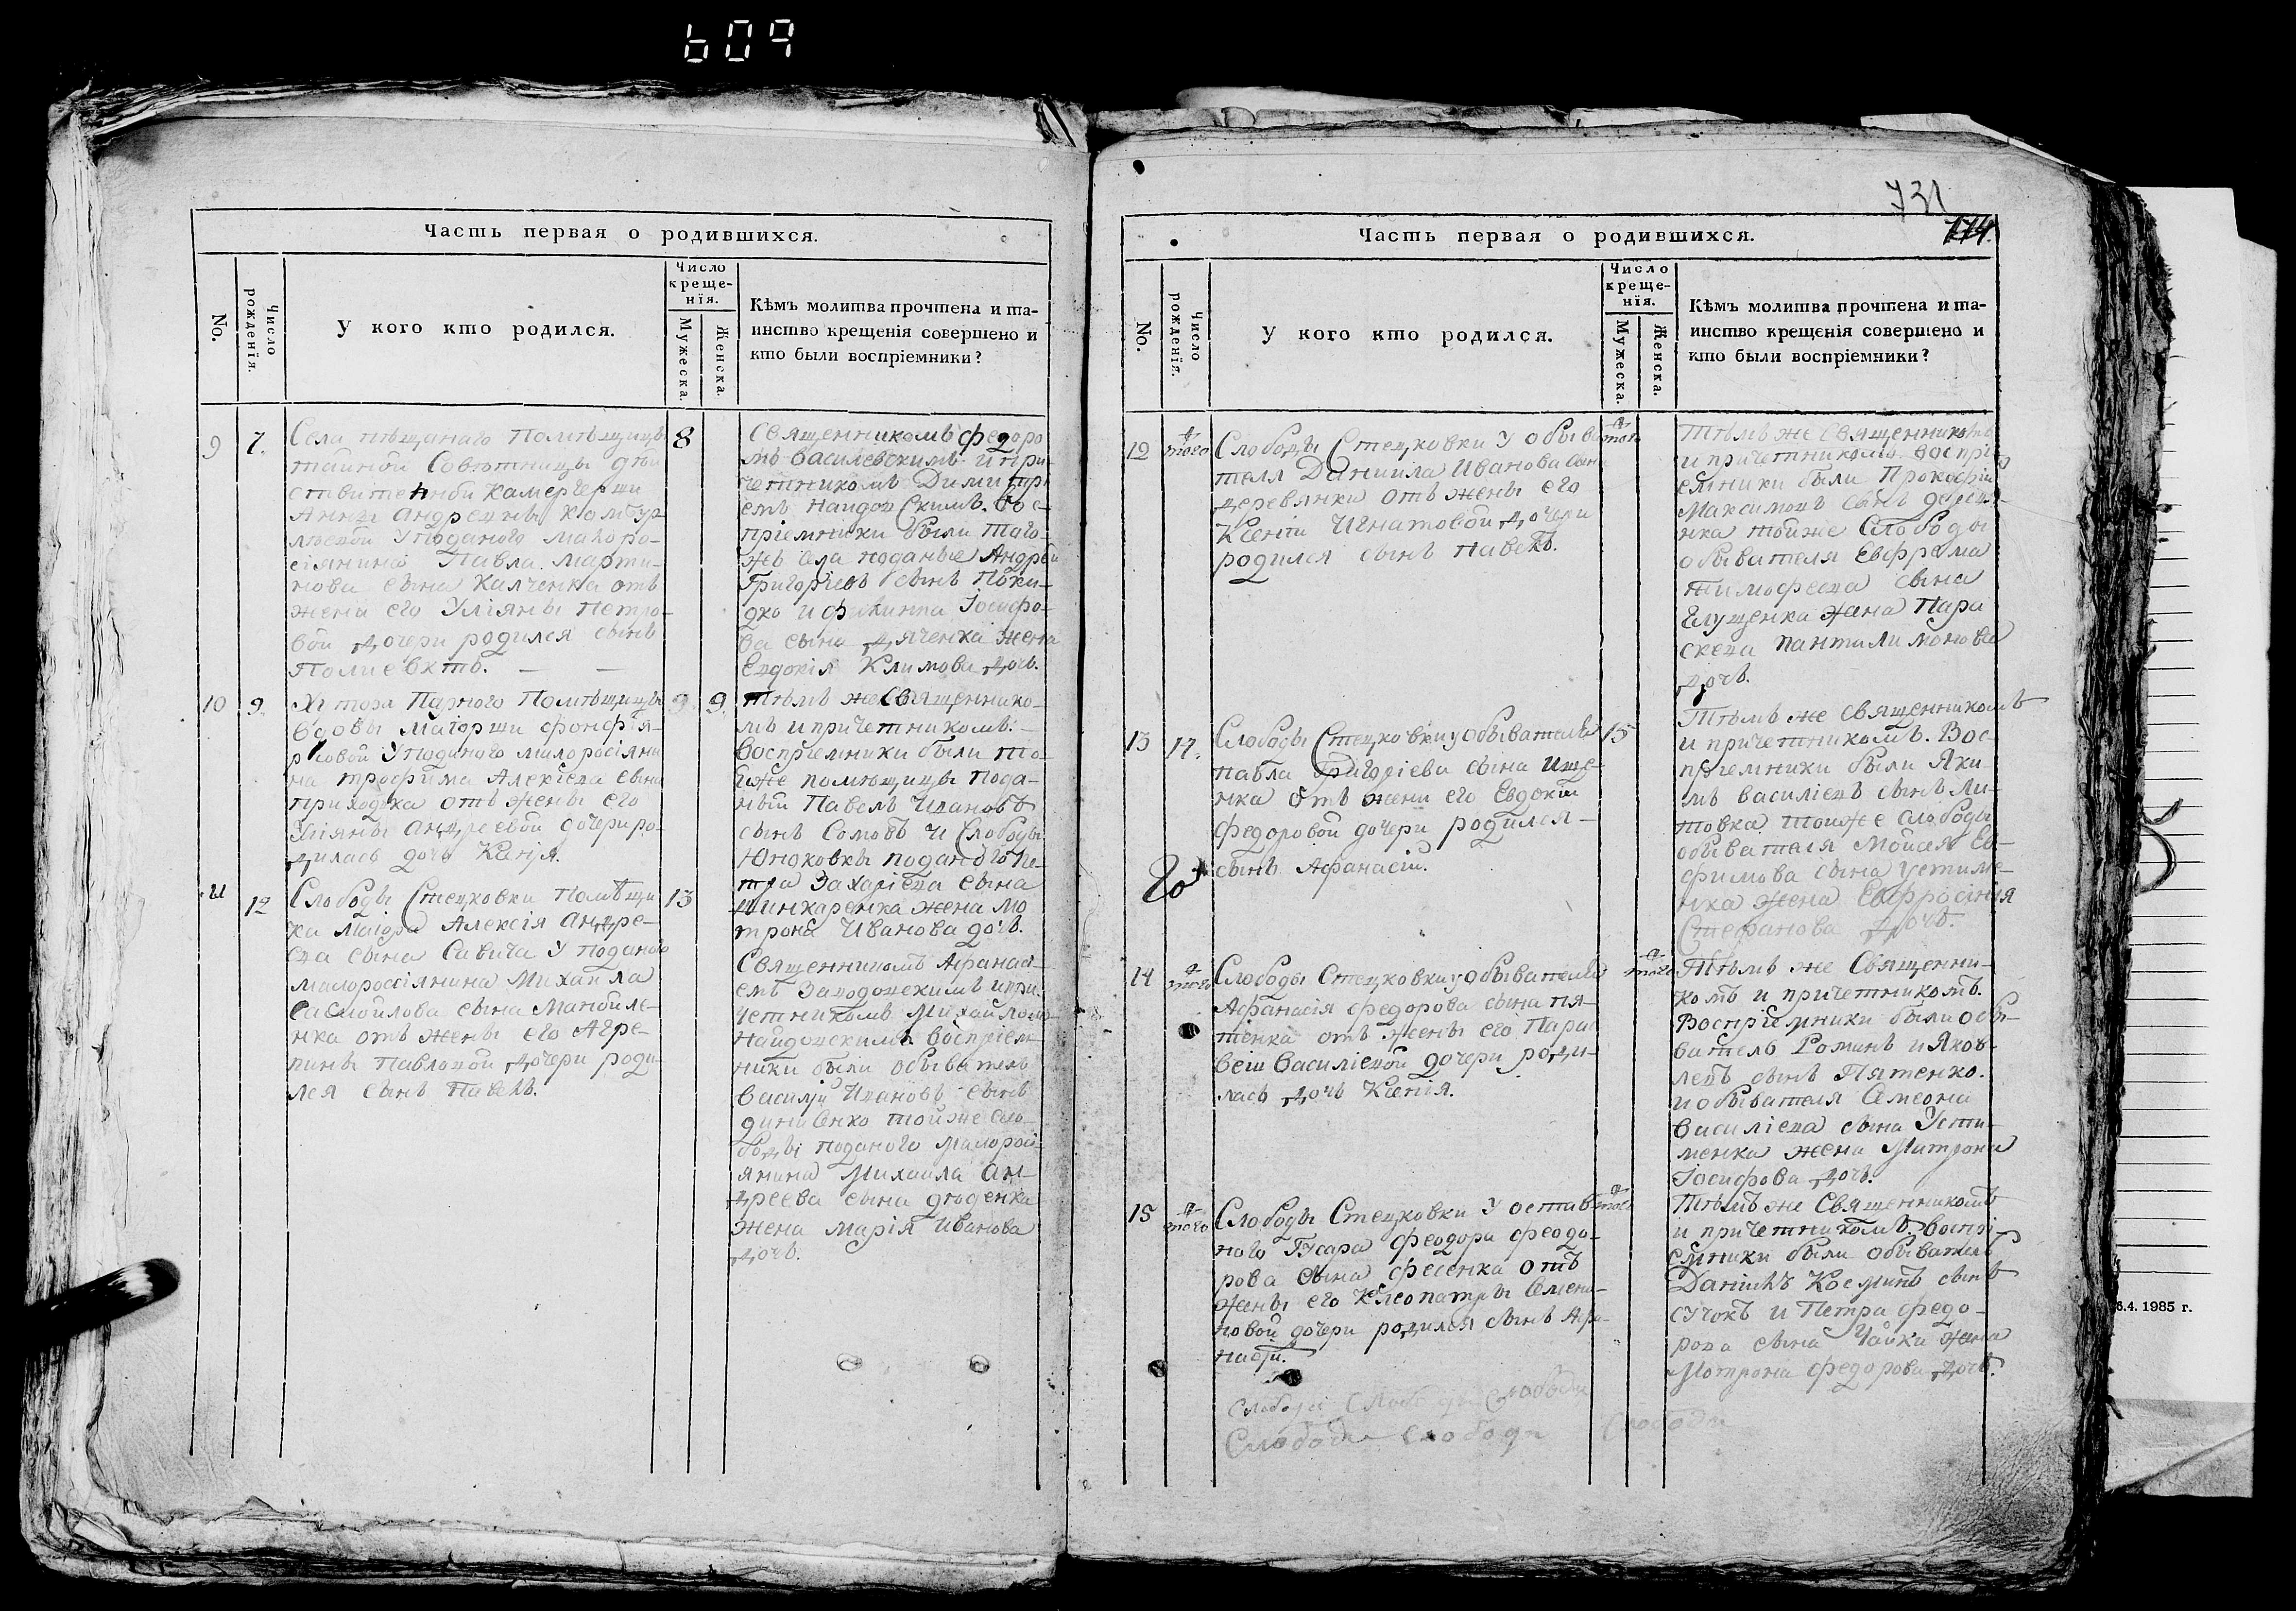 609
Часть первая о родившихся.
No.
Число рожденїя.
У кого кто родился.
Число крещенїя.
Мужеска.
Женска.
Кѣмъ молитва прочтена и та-
инство крещенїя совершено и
кто были воспрїемники?
9 7. 8
Села пѣщанаго Помѣщицы
тайной Совѣтницы дѣй
ствителной камергерши
Анны Андревны
у поданого малоро-
сіянина Павла Марти-
нова сына Калченка отъ
жены его Уліяны Петро-
вой дочери родился сынъ
Полиевктъ. — —
Священникомъ Федоро
мъ Василевскимъ и при-
четникомъ Димитри
емъ Найдовскимъ. Вос-
пріемники были того-
жъ села поданые Андрей
Григоріевъ сынъ
и Филипа Іосифо-
ва сына Дяченка жена
Евдокія Климова дочь.
10 9. 9 9.
Хутора Парного Помѣщицы
вдовы Маіорши
у поданого малоросіяни
на Трофима Алексіева сына
Приходка отъ жены его
Уліяны Андреевой дочери ро-
дилась дочь Ксенія.
Тѣмъ же Священнико-
мъ и причетникомъ.
Воспріемники были то-
йже помѣщицы пода-
ный Павелъ Ивановъ
сынъ Сомовъ и Слободы
Юнаковки поданого Пе-
тра Захаріева сына
Шинкаренка жена Мо
трона Иванова дочь.
11 12 13
Слободы Стецковки Помѣщи
ка Маіора Алексія Андре-
ева сына Савича у поданого
малороссіянина Михаила
Самойлова сына Манойле-
нка отъ жены его Агре-
пины Павловой дочери роди-
лся сынъ Павелъ.
Священникомъ Афанасі-
емъ и при-
четникомъ Михайломъ
Найдовскимъ Воспріем-
ники были обыватель
Василій Ивановъ сынъ
той же сло-
боды поданого Малорос-
янина Михаила Ан-
дреева сына
жена Марія Иванова
дочь.
731
774.
Часть первая о родившихся.
No.
Число рожденїя.
У кого кто родился.
Число крещенїя.
Мужеска.
Женска.
Кѣмъ молитва прочтена и та-
инство крещенїя совершено и
кто были воспрїемники?
12 того того
Слободы Стецковки у обыва
теля Даниила Иванова сына
деревянки отъ жены его
Ксении Игнатовой дочери
родился сынъ Павелъ.
Тѣмъ же священникомъ
и причетникомъ воспри
емники были Прокофій
Максимовъ сынъ деревя-
нка тойже Слободы
обывателя Евфрема
Тимофеева сына
Глущенка жена Пара
скева Пантилимонова
дочь.
13 14. 15
Слободы Стецковки у обывателя
Павла Григоріева сына Ище-
нка отъ жены его Евдокіи
Федоровой дочери родился
сынъ Афанасій.
Тѣмъ же священникомъ
и причетникомъ. Вос-
пріемники были Яки-
мъ Василіевъ сынъ Ли-
товка тойже слободы
обывателя Мойсея Ев-
фимова сына Устиме-
нка жена Евфросинія
Стефанова дочь.
14 того того
Слободы Стецковки у обывателя
Афанасія Федорова сына Пя-
тенка отъ жены его Парас
кевіи Василіевой дочери роди-
лась дочь Ксенія.
Тѣмъ же Священни-
комъ и причетникомъ.
Воспріемники были обы-
ватель Романъ Яков-
левъ сынъ Пятенко.
и обывателя Семеона
Василіева сына Усти-
менка жена Матрона
Іосифова дочь.
15 того того
Слободы Стецковки у остав
ного Гусара Феодора Феодо-
рова сына Фесенка отъ
жены его Клеопатры Семено-
новой дочери родился сынъ Афа-
насій.
Тѣмъ же Священникомъ
и причетникомъ воспрі
емники были обыватель
Даніилъ Косминъ сынъ
Сучокъ и Петра Федо-
рова сына Чайки жена
Мотрона Федорова дочь.
Слободы Слободы Слободы
Слободы Слободы Слободы
6.4. 1985 г.